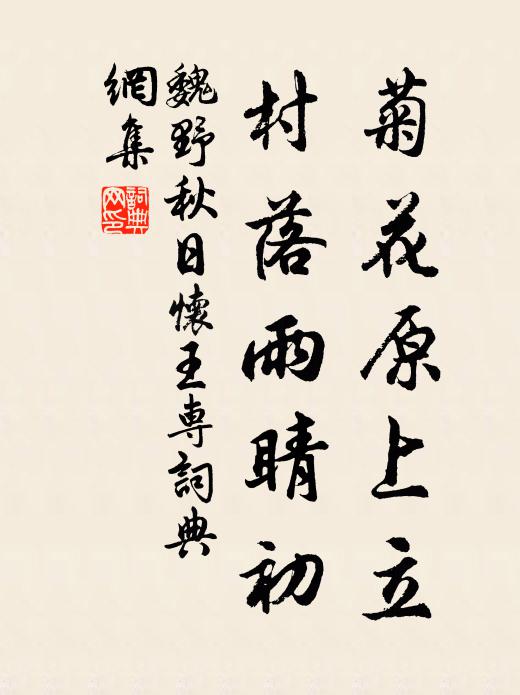 菊花原上立
村落雨晴初
魏野秋日懷王專詞典
網集
詞典網印